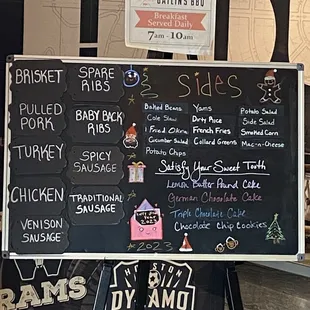 GATLIN'S BBQ
Breakfast
Served Daily
7am - 10am
BRISKET
SPARE
RIBS
PULLED
PORK
BABY BACK
RIBS
TURKEY
SPICY
SAUSAGE
CHICKEN
TRADITIONAL
SAUSAGE
VENISON
SAUSAGE
Sides
Baked Beans Yams Potato Salad
Cole Slaw Dirty Rice Side Salad
Fried Okra French Fries Smoked Corn
Cucumber Salad Collard Greens Mac-n-Cheese
Potato Chips
Satisfy Your Sweet Tooth
Lemon Butter Pound Cake
German Chocolate Cake
Triple Chocolate Cake
Chocolate Chip Cookies
2023
RAMS
HOUSTON
DYNAMO